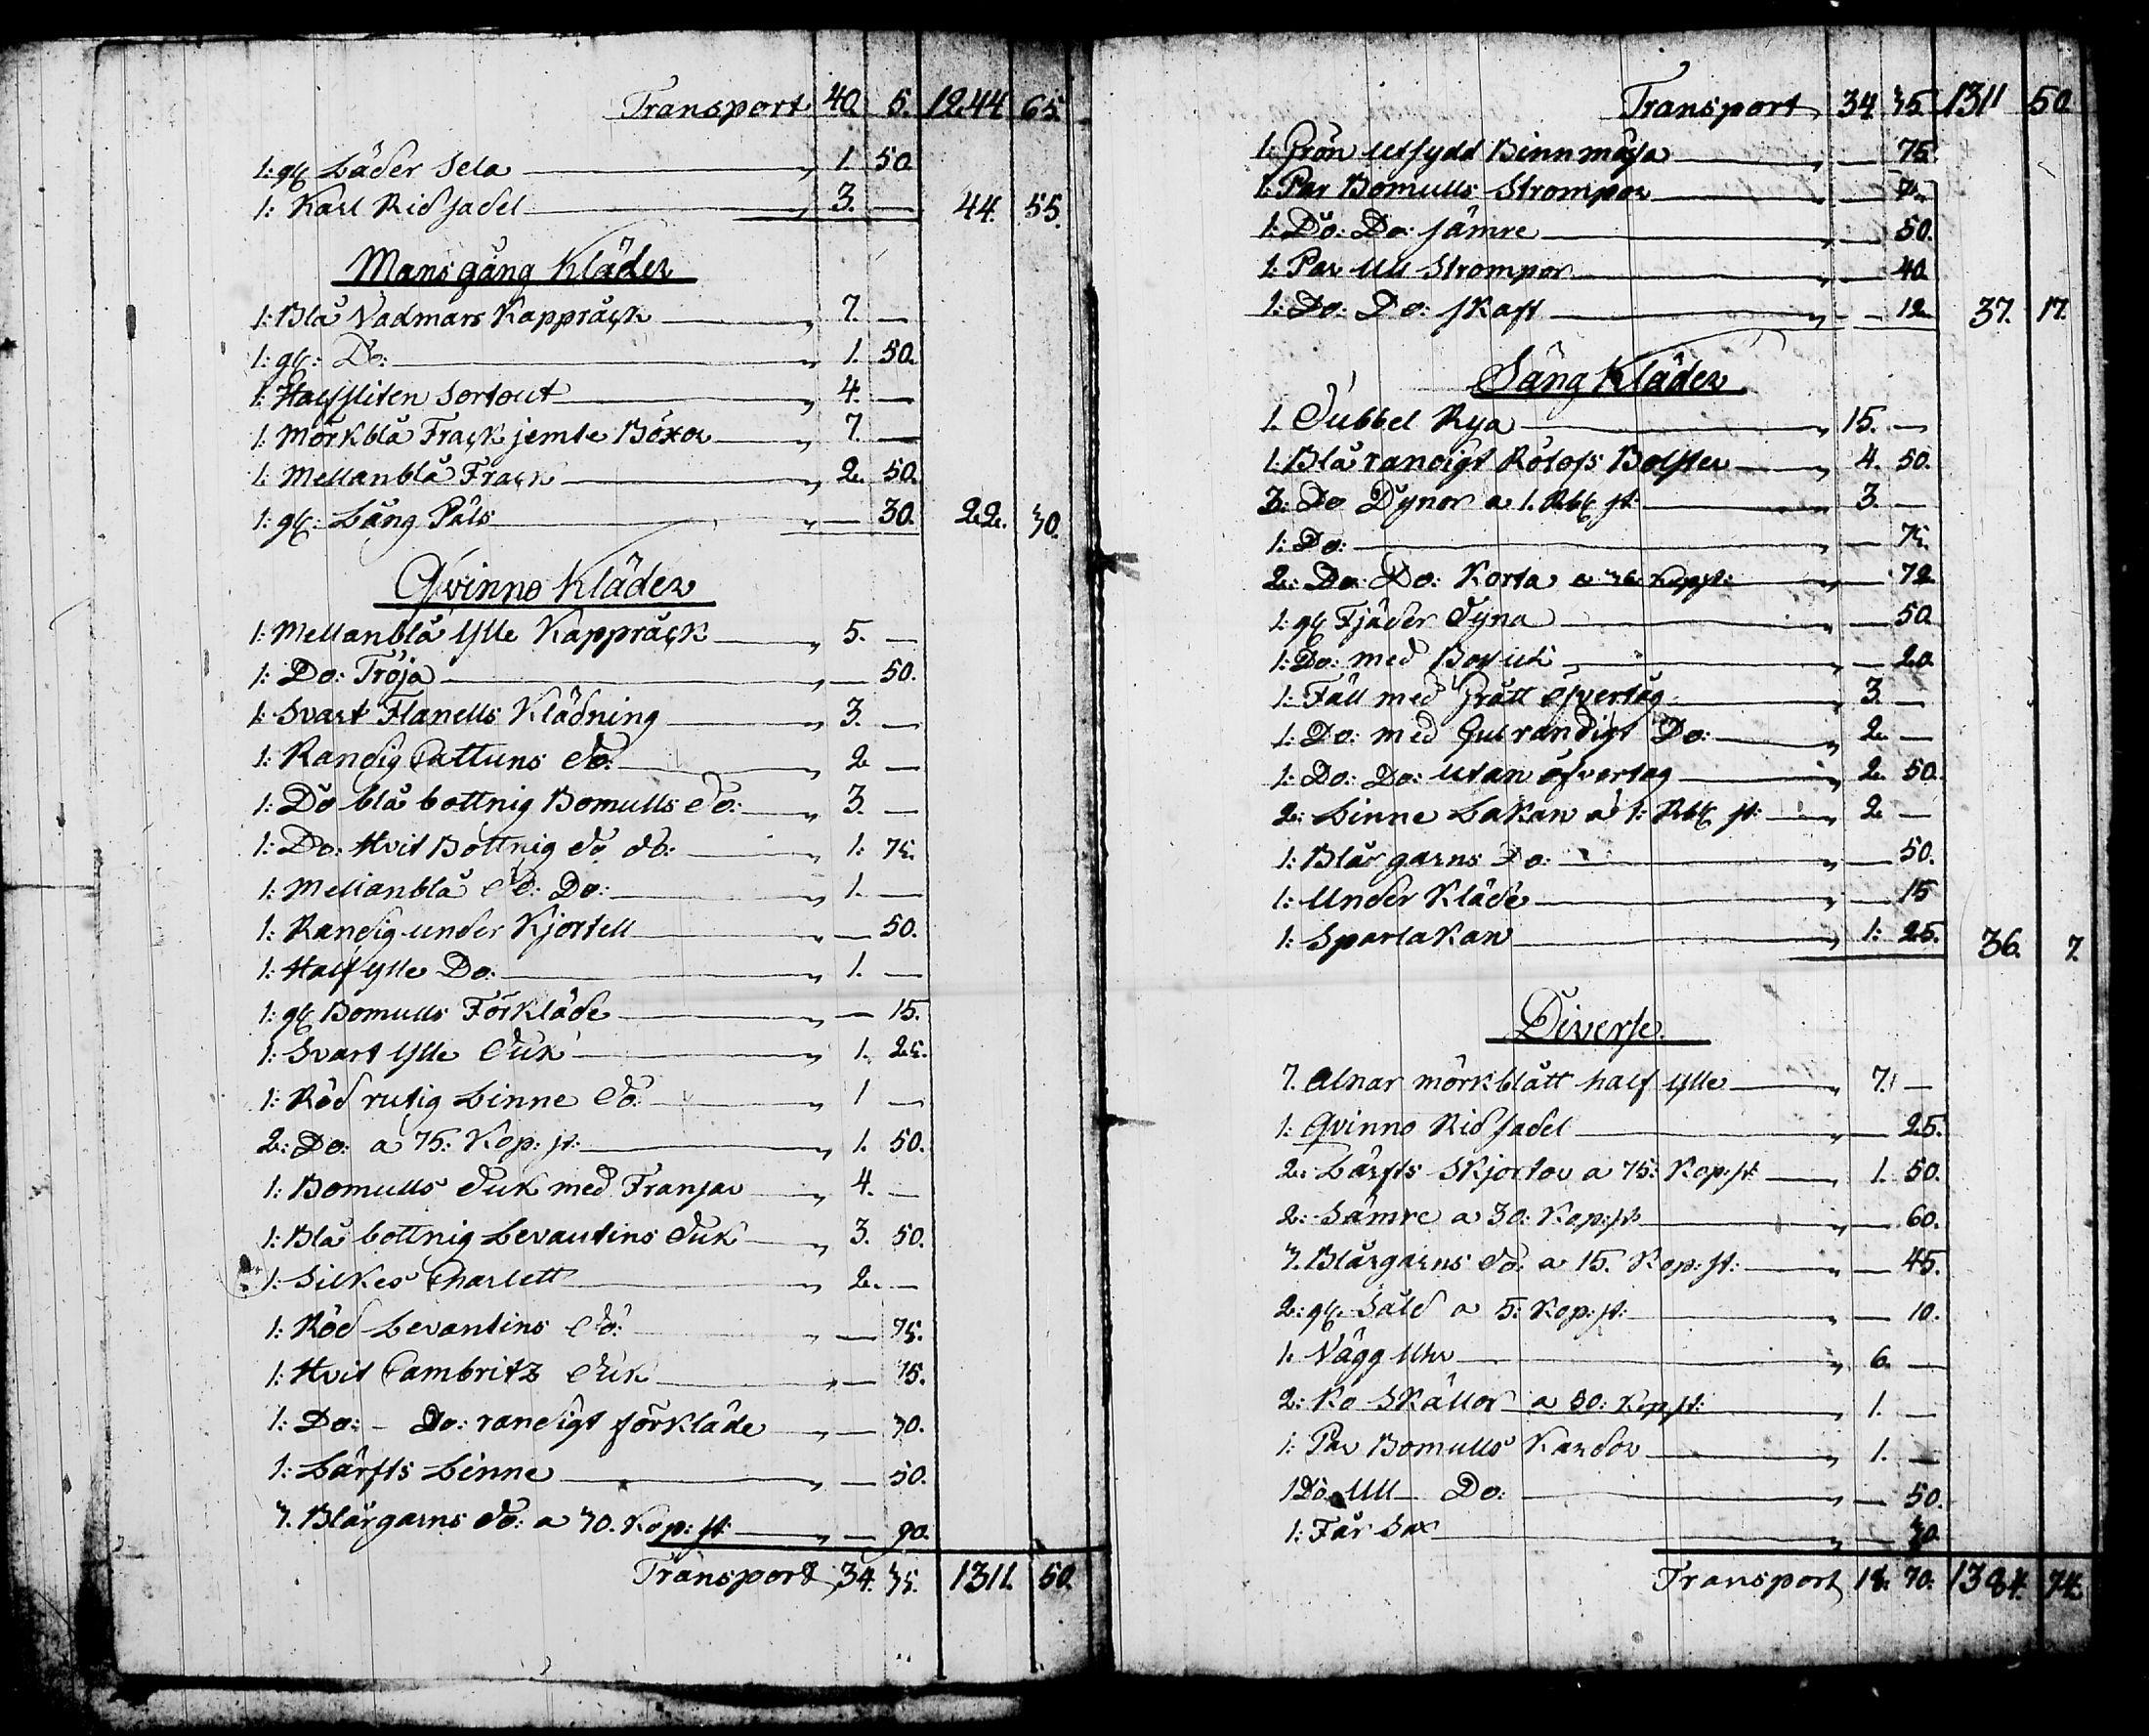 Transport 40. 5. 1244 65.
1: gl Läder Sela — 1. 50.
1: Karl Ridsadel — 3. — 44. 55.
Mans gång Kläder
1: Blå Vadmars Kappråck — 7. —
1: gl: Do: — 1. 50.
1: Halfsliten Sortout — 4. —
1: Mörkblå Frack jemte Böxor — 7. —
1: Mellanblå Frack — 2. 50.
1: gl: Lång Päls — 30. 22. 30.
Qvinno Kläder
1: Mellanblå Ylle Kappråck — 5. —
1: Do: Tröja — 50.
1: Svart Flanells Klädning — 3. —
1: Randig Cattuns do: — 2 —
1: Do blå bottnig Bomulls do: — 3. —
1: Do: Hvit Bottnig do do: — 1: 75.
1: Mellanblå do: Do: — 1. —
1: Randig under Kjortell — 50.
1: Half Ylle Do: — 1. —
1: gl Bomulls Förkläde — 15.
1: Svart Ylle Duk — 1. 25.
1: Röd rutig Linne do: — 1 —
2: Do: a 75: Kop: st: — 1. 50.
1: Bomulls Duk med Fransar — 4. —
1: Blå bottnig Levantins Duk — 3. 50.
1: Silkes Charlett — 2. —
1: Röd Levantins do: — 75.
1: Hvit Cambritz Duk — 15.
1: Do: - Do: randigt förkläde — 30.
1: Lärfts Linne — 50.
3. Blårgarns do: a 30. Kop: st: — 90.
Transport 34. 35. 1311. 50.
Transport 34. 35. 1311 50
1. Grön Utsydd Binnmössa — 75.
1. Par Bomulls Strompor — 75
1: Do: Do: sämre — 50.
1: Par Ull Strompor — 40
1: Do: Do: skaft — 12 37. 17.
Säng Kläder
1. Dubbel Rya — 15. —
1: Blå randigt Bolster — 4. 50.
3: Do Dynor a 1. Rbl st: — 3. —
1: Do: — 75.
2: Do: Do: Korta a 36 Kop st: — 72
1: gl Fjäder Dyna — 50.
1: Do: med — 20.
1: Fäll med Grått öfvertag — 3. —
1: Do: med Gulrandigt Do: — 2. —
1: Do: Do: utan öfvertag — 2. 50.
2: Linne Lakan a 1: Rbl st: — 2 —
1: Blårgarns Do: — 50.
1: Under Kläde — 15
1: Sparlakan — 1: 25. 36. 7.
Diverse.
7. Alnar mörkblått half Ylle — 7. —
1: Qvinno Rid sadel — 25.
2: Lärfts Skjortor a 75: Kop: st: — 1. 50.
2: Sämre a 30: Kop: st: — 60.
3. Blårgarns do: a 15. Kop: st: — 45.
2: gl Såld a 5: Kop: st: — 10.
1. Vägg Uhr — 6. —
2: Ko Skällor a 50: Kop st: — 1. —
1: Par Bomulls Kardor — 1. —
1 Do Ull Do: — 50.
1: Får Sax — 30
Transport 18: 70: 1384. 74.